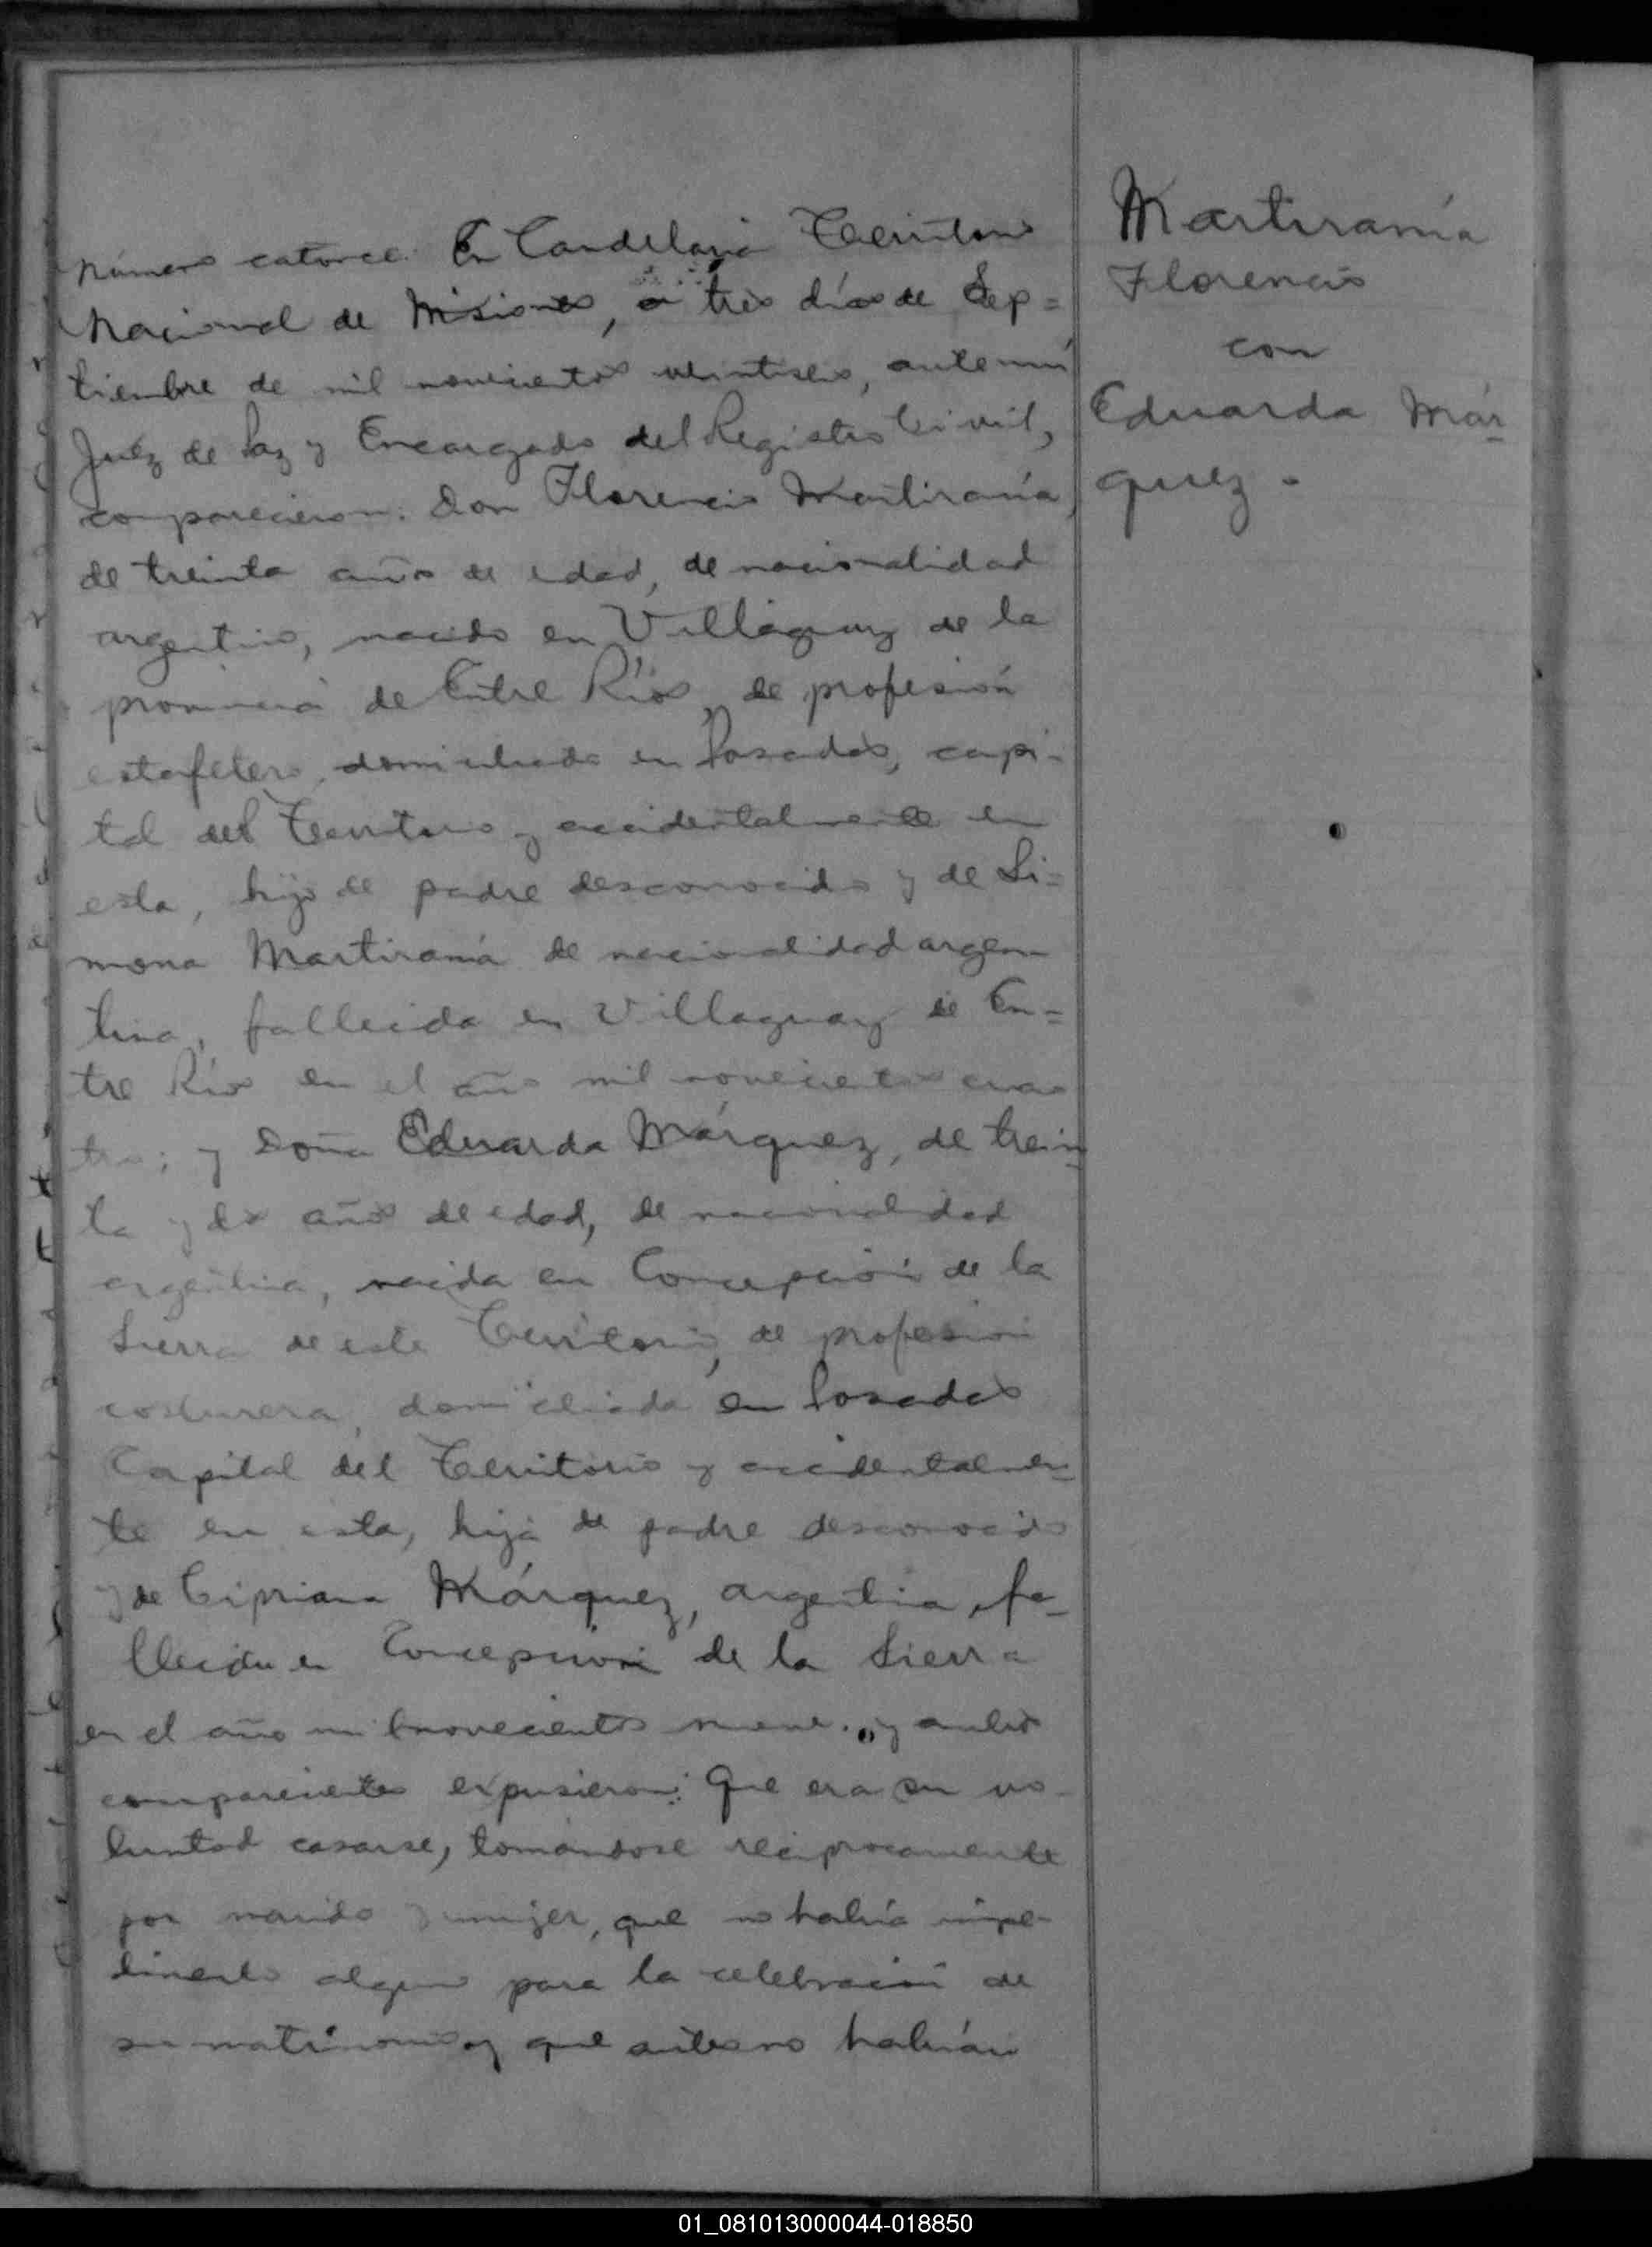 Número catorce. En Candelaria Territorio
Nacional de Misiones, a tres días de Sep=
tiembre de mil novecientos veintiseis, ante mi
Juéz de Paz y Encargado del Registro Civil,
comparecieron: Don Florencio Martiranía,
de treinta años de edad, de nacionalidad
argentino, nacido en Villaguay de la
provincia de Entre Ríos, de profesión
estafetero, domiciliado en Posadas, capi-
tal del Territorio y accidentalmente en
esta, hijo de padre desconocido y de Si=
mona Martiranía de nacionalidad argen
tina, fallecida en Villaguay de En=
tre Ríos en el año mil novecientos cua
tro; y Doña Eduarda Márquez, de trein
ta y dos años de edad, de nacionalidad
argentina, nacida en Concepción de la
Sierra de este Territorio, de profesión
costurera, domiciliada en Posadas
Capital del Territorio y accidentalmen
te en esta, hija de padre desconocido
y de Cipriana Márquez, argentina, fa-
llecida en Concepción de la Sierra
en el año mil novecientos nueve. y ambos
comparecientes expusieron: Que era su vo-
luntad casarse, tomándose reciprocamente
por marido y mujer, que no había impe-
dimento alguno para la celebración de
su matrimonio y que antes no habían
Martiranía
Florencio
con
Eduarda Már-
quez.
01_081013000044-018850